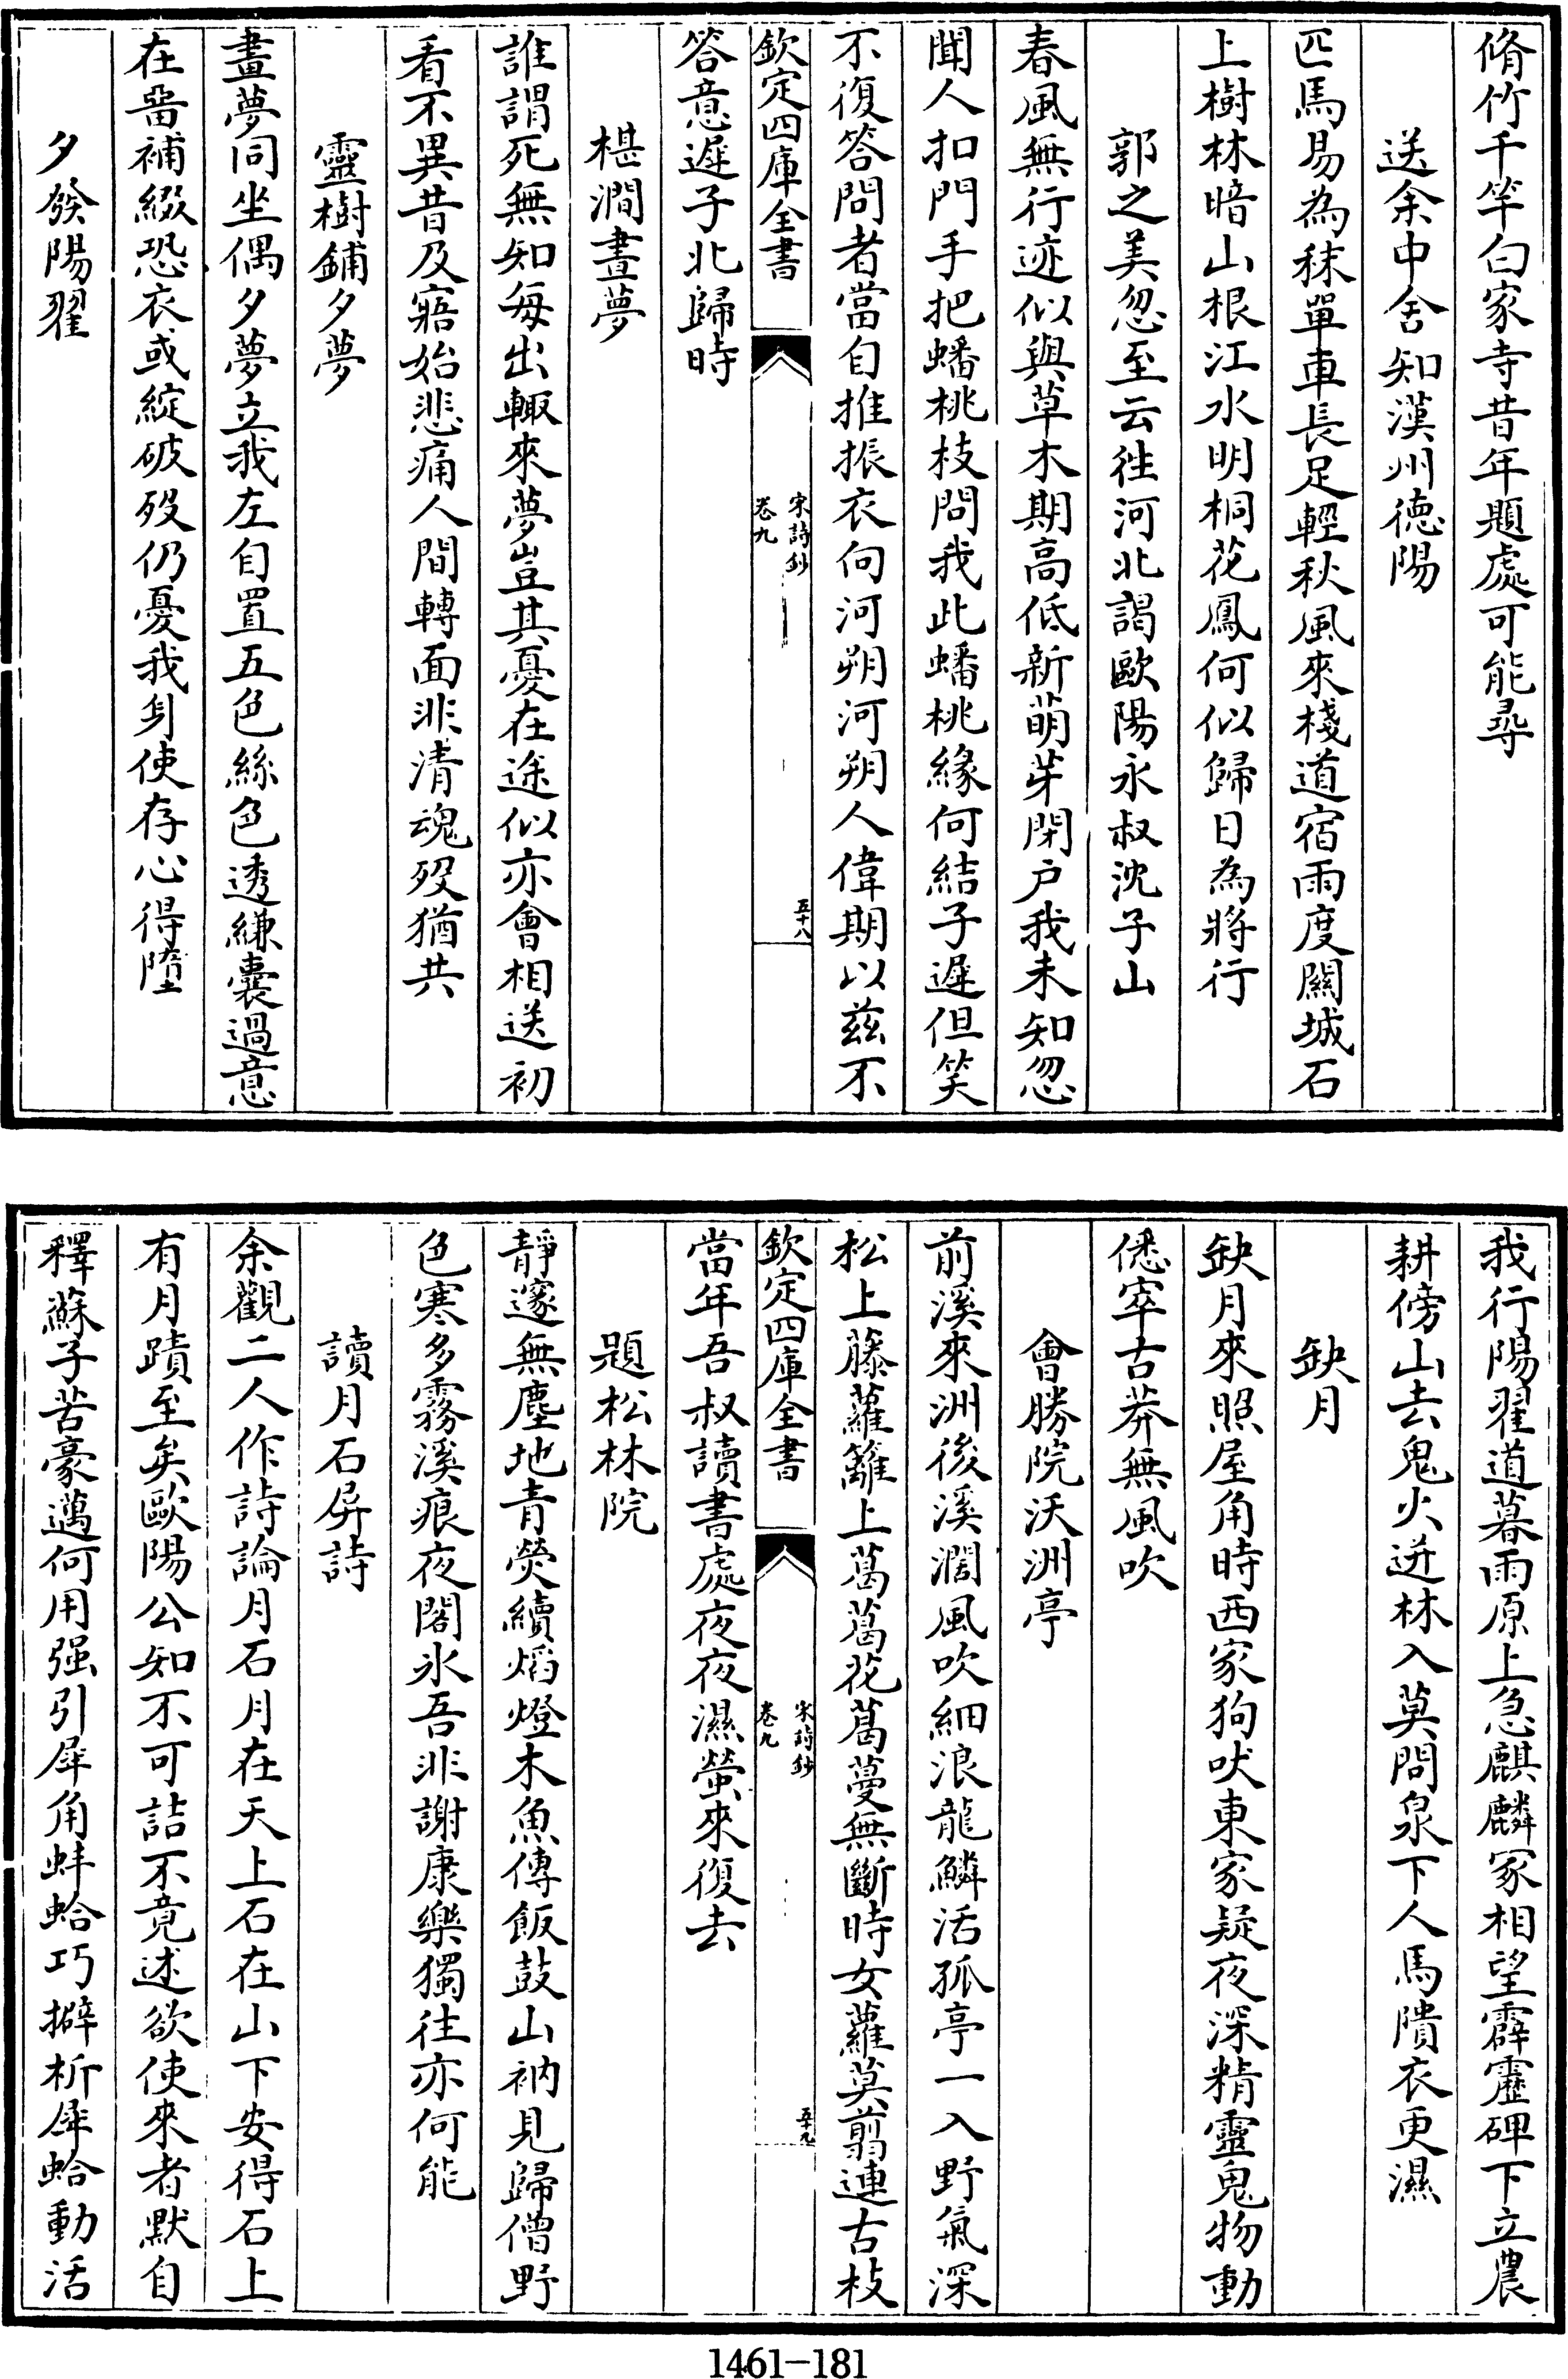 脩竹千竿白家寺昔年題處可能尋
送余中舍知漢州德陽
匹馬易為秣單車長足輕秋風來棧道宿雨度關城石
上樹林暗山根江水明桐花鳳何似歸日為將行
郭之美忽至云徃河北謁歐陽永叔沈子山
春風無行迹似與草木期高低新萌芽閉户我未知忽
聞人扣門手把蟠桃枝問我此蟠桃緣何結子遲但笑
不復答問者當自推振衣向河朔河朔人偉期以兹不
欽定四庫全書
宋詩鈔
卷九
五十八
答意遲子北歸時
椹澗晝夢
誰謂死無知每出輙來夢豈其憂在途似亦會相送初
看不異昔及寤始悲痛人間轉面非清魂歿猶共
靈樹鋪夕夢
晝夢同坐偶夕夢立我左自置五色絲色透縑囊過意
在啇補綴恐衣或綻破歿仍憂我身使存心得墮
夕發陽翟
我行陽翟道暮雨原上急麒麟冢相望霹靂碑下立農
耕傍山去鬼火迸林入莫問泉下人馬隤衣更濕
缺月
缺月來照屋角時西家狗吠東家疑夜深精靈鬼物動
僁窣古莽無風吹
會勝院沃洲亭
前溪來洲後溪濶風吹細浪龍鱗活孤亭一入野氣深
松上藤蘿籬上葛葛花葛蔓無斷時女蘿莫翦連古枝
欽定四庫全書
宋詩鈔
卷九
五十九
當年吾叔讀書處夜夜濕螢來復去
題松林院
靜邃無塵地青熒續熖燈木魚傳飯鼓山衲見歸僧野
色寒多霧溪痕夜閣氷吾非謝康樂獨往亦何能
讀月石屏詩
余觀二人作詩論月石月在天上石在山下安得石上
有月蹟至矣歐陽公知不可詰不竟述欲使來者默自
釋蘇子苦豪邁何用强引犀角蚌蛤巧擗析犀蛤動活
1461-181